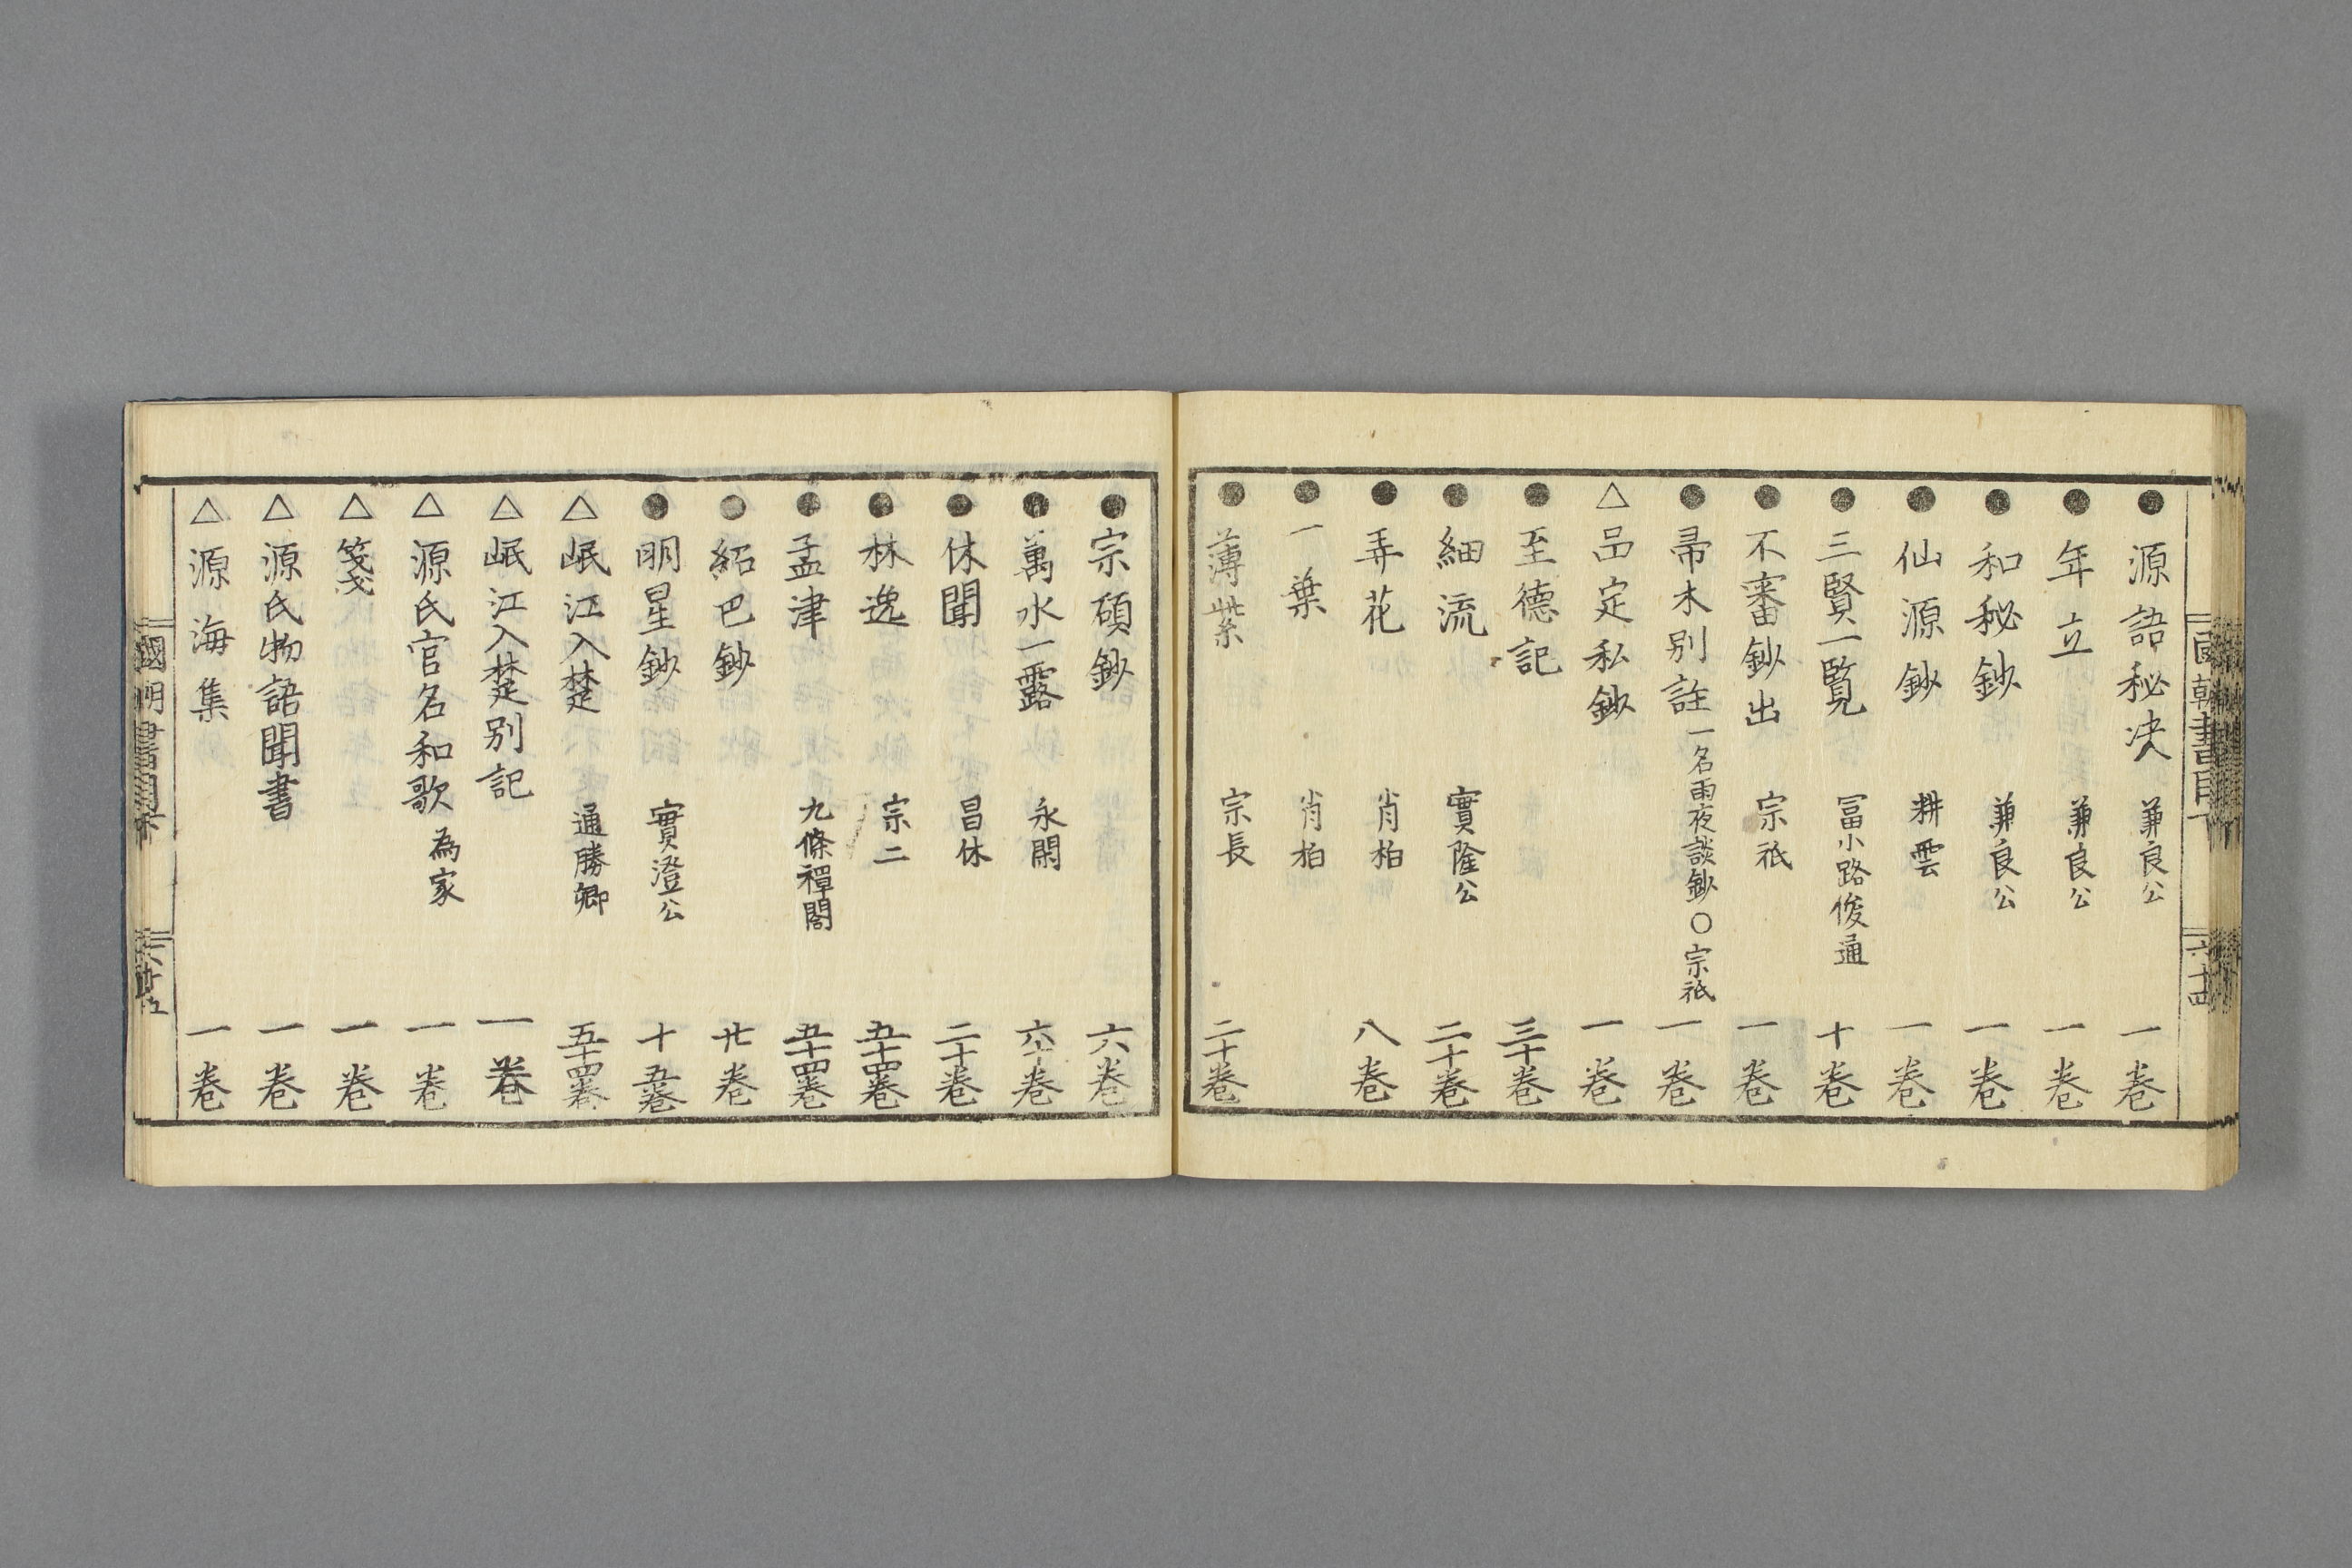 ●源語秘决 兼良公 一卷
●年立 兼良公 一卷
●和秘鈔 兼良公 一卷
●仙源鈔 耕雲 一卷
●三賢一覧 冨小路俊通 十卷
●不審鈔出 宗祇 一卷
●帚木别註 一名雨夜談鈔〇宗祇 一卷
△品定私鈔 一卷
●至德記 三十卷
●細流 實隆公 二十卷
●弄花 肖柏 八卷
●一葉 肖柏
●薄紫 宗長 二十卷
●宗碩鈔 六卷
●萬水一露 永閑 六十卷
●休聞 昌休 二十卷
●林逸 宗二 五十四卷
●孟津 九條禪閤 五十四卷
●紹巴鈔 廿卷
●明星鈔 實澄公 十五卷
△岷江入楚 通勝卿 五十四卷
△岷江入楚别記 一卷
△源氏官名和歌 為家 一卷
△箋 一卷
△源氏物語聞書 一卷
△源海集 一卷